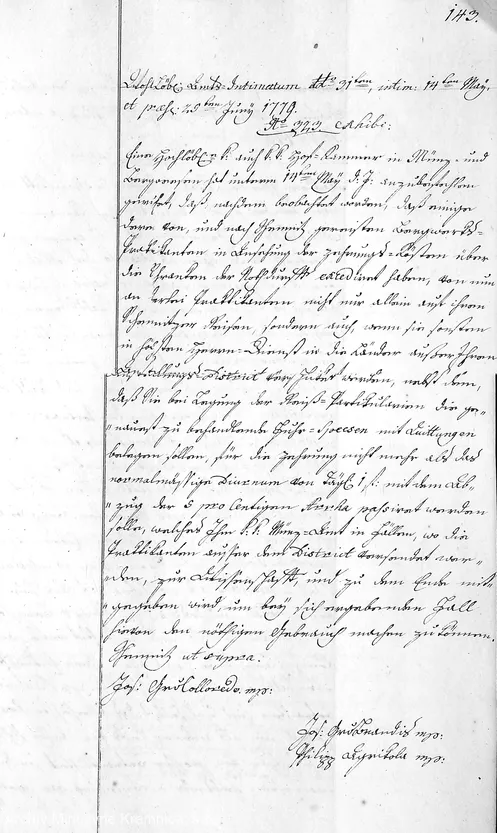 143.
Hochlöbl: Amts-Intimatum dd: 31ten, intim: 14ten May,
et præs: 25ten Juny 1779.
No 323 exhib:
Eine Hochlöbl: k: auch k: k: Hof-Kammer in Münz- und
Bergwesen hat unterm 14ten May d. J: anzubefehlen
geruhet, daß, nachdem beobachtet worden, daß einige
deren von, und nach Schemnitz gereisten Bergwerks-
Praktikanten in Ansehung der Zehrungs-Kosten über
die Schranken der Nothdurft excediret haben, von nun
an derlei Praktikanten nicht nur allein auf ihren
Schemnitzer Reisen, sondern auch, wenn sie sonsten
in höchsten Herrn-Dienst in die Länder außer Ihrem
Anstellungs District verschicket wurden, nebst dem,
daß Sie bei Legung der Reiß-Partikularien die ge-
nauest zu behandlende Fuhr-Speesen mit Quittungen
belegen sollen, für die Zehrung nicht mehr als das
normalmässige Diurnum von Tägl: 1 f: mit dem Ab-
zug der 5 pro Centigen Arrha passiret werden
solle, welches Ihm k: k: Münz-Amt in Fällen, wo die
Praktikanten außer dem District versendet wer-
den, zur Wissenschaft, und zu dem Ende mit-
gegeben wird, um bey sich ergebenden Fall
hievon den nöthigen Gebrauch machen zu können.
Schemnitz ut supra.
Jos: Gr: Colloredo. mp:
Jos: Gr: Brandis mp:
Philipp Agrikola mp: